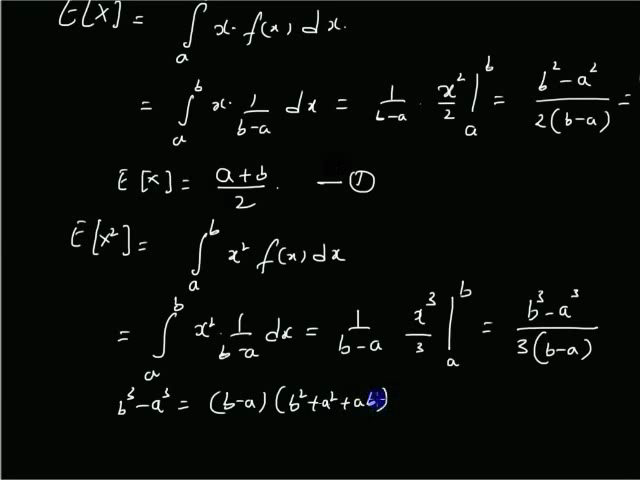 E[X] = ∫ₐ x. f(x) dx.
= ∫ₐᵇ x. 1/(b-a) dx = 1/(b-a) . x²/2 |ₐᵇ = (b²-a²)/(2(b-a)) =
E[X] = (a+b)/2 . — ①
E[X²] = ∫ₐᵇ x² f(x) dx
= ∫ₐᵇ x². 1/(b-a) dx = 1/(b-a) x³/3 |ₐᵇ = (b³-a³)/(3(b-a))
b³-a³ = (b-a) (b²+a²+ab)